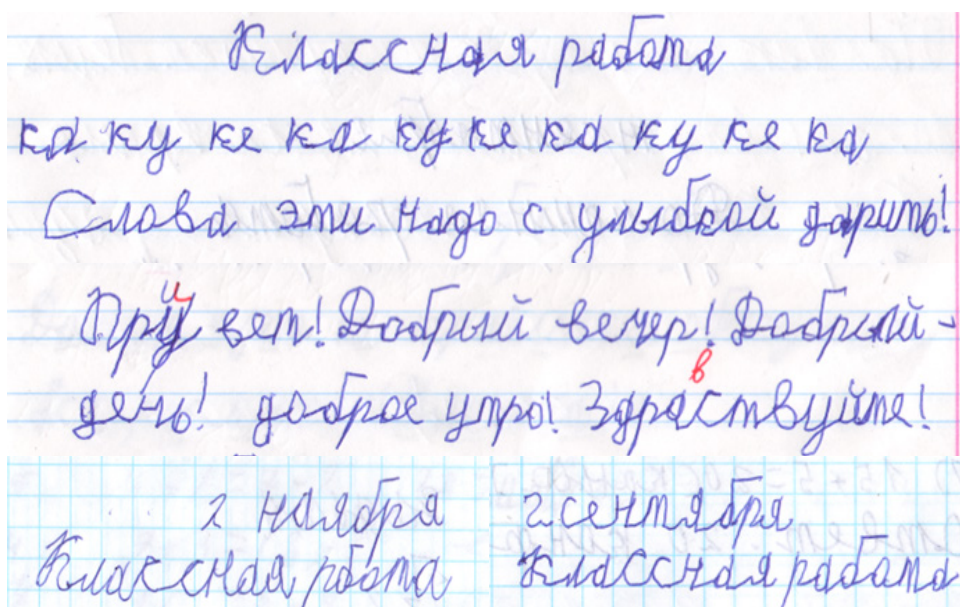 Классная работа
ка ку ке ка ку ке ка ку ке ка
Слова эти надо с улыбкой дарить!
При вет! Добрый вечер! Добрый -
день! доброе утро! Здраствуйте!
2 ноября
Классная рбота
2 сентября
Классная работа